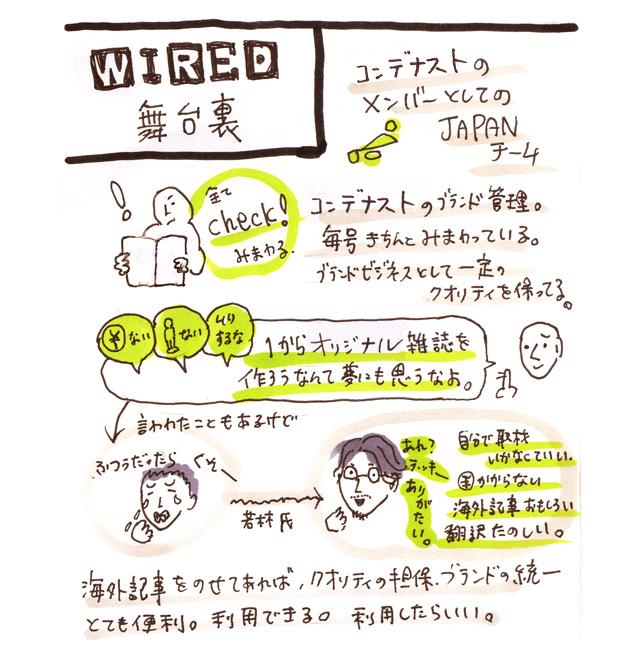 WIRED
舞台裏
コンデナストの
メンバーとしての
JAPAN
チーム
!
全て
check!
みまわる.
コンデナストのブランド管理。
毎号きちんとみまわっている。
ブランドビジネスとして一定の
クオリティを保ってる。
¥ない
ない
ムリ
するな
1からオリジナル雑誌を
作ろうなんて夢にも思うなよ。
言われたこともあるけど
ふつうだったら
くそ〜
若林氏
あん?
ラッキー
ありがたい。
自分で取材
いかなくていい。
金がかからない
海外記事おもしろい
翻訳たのしい。
海外記事をのせてあれば、クオリティの担保、ブランドの統一
とても便利。利用できる。利用したらいい。